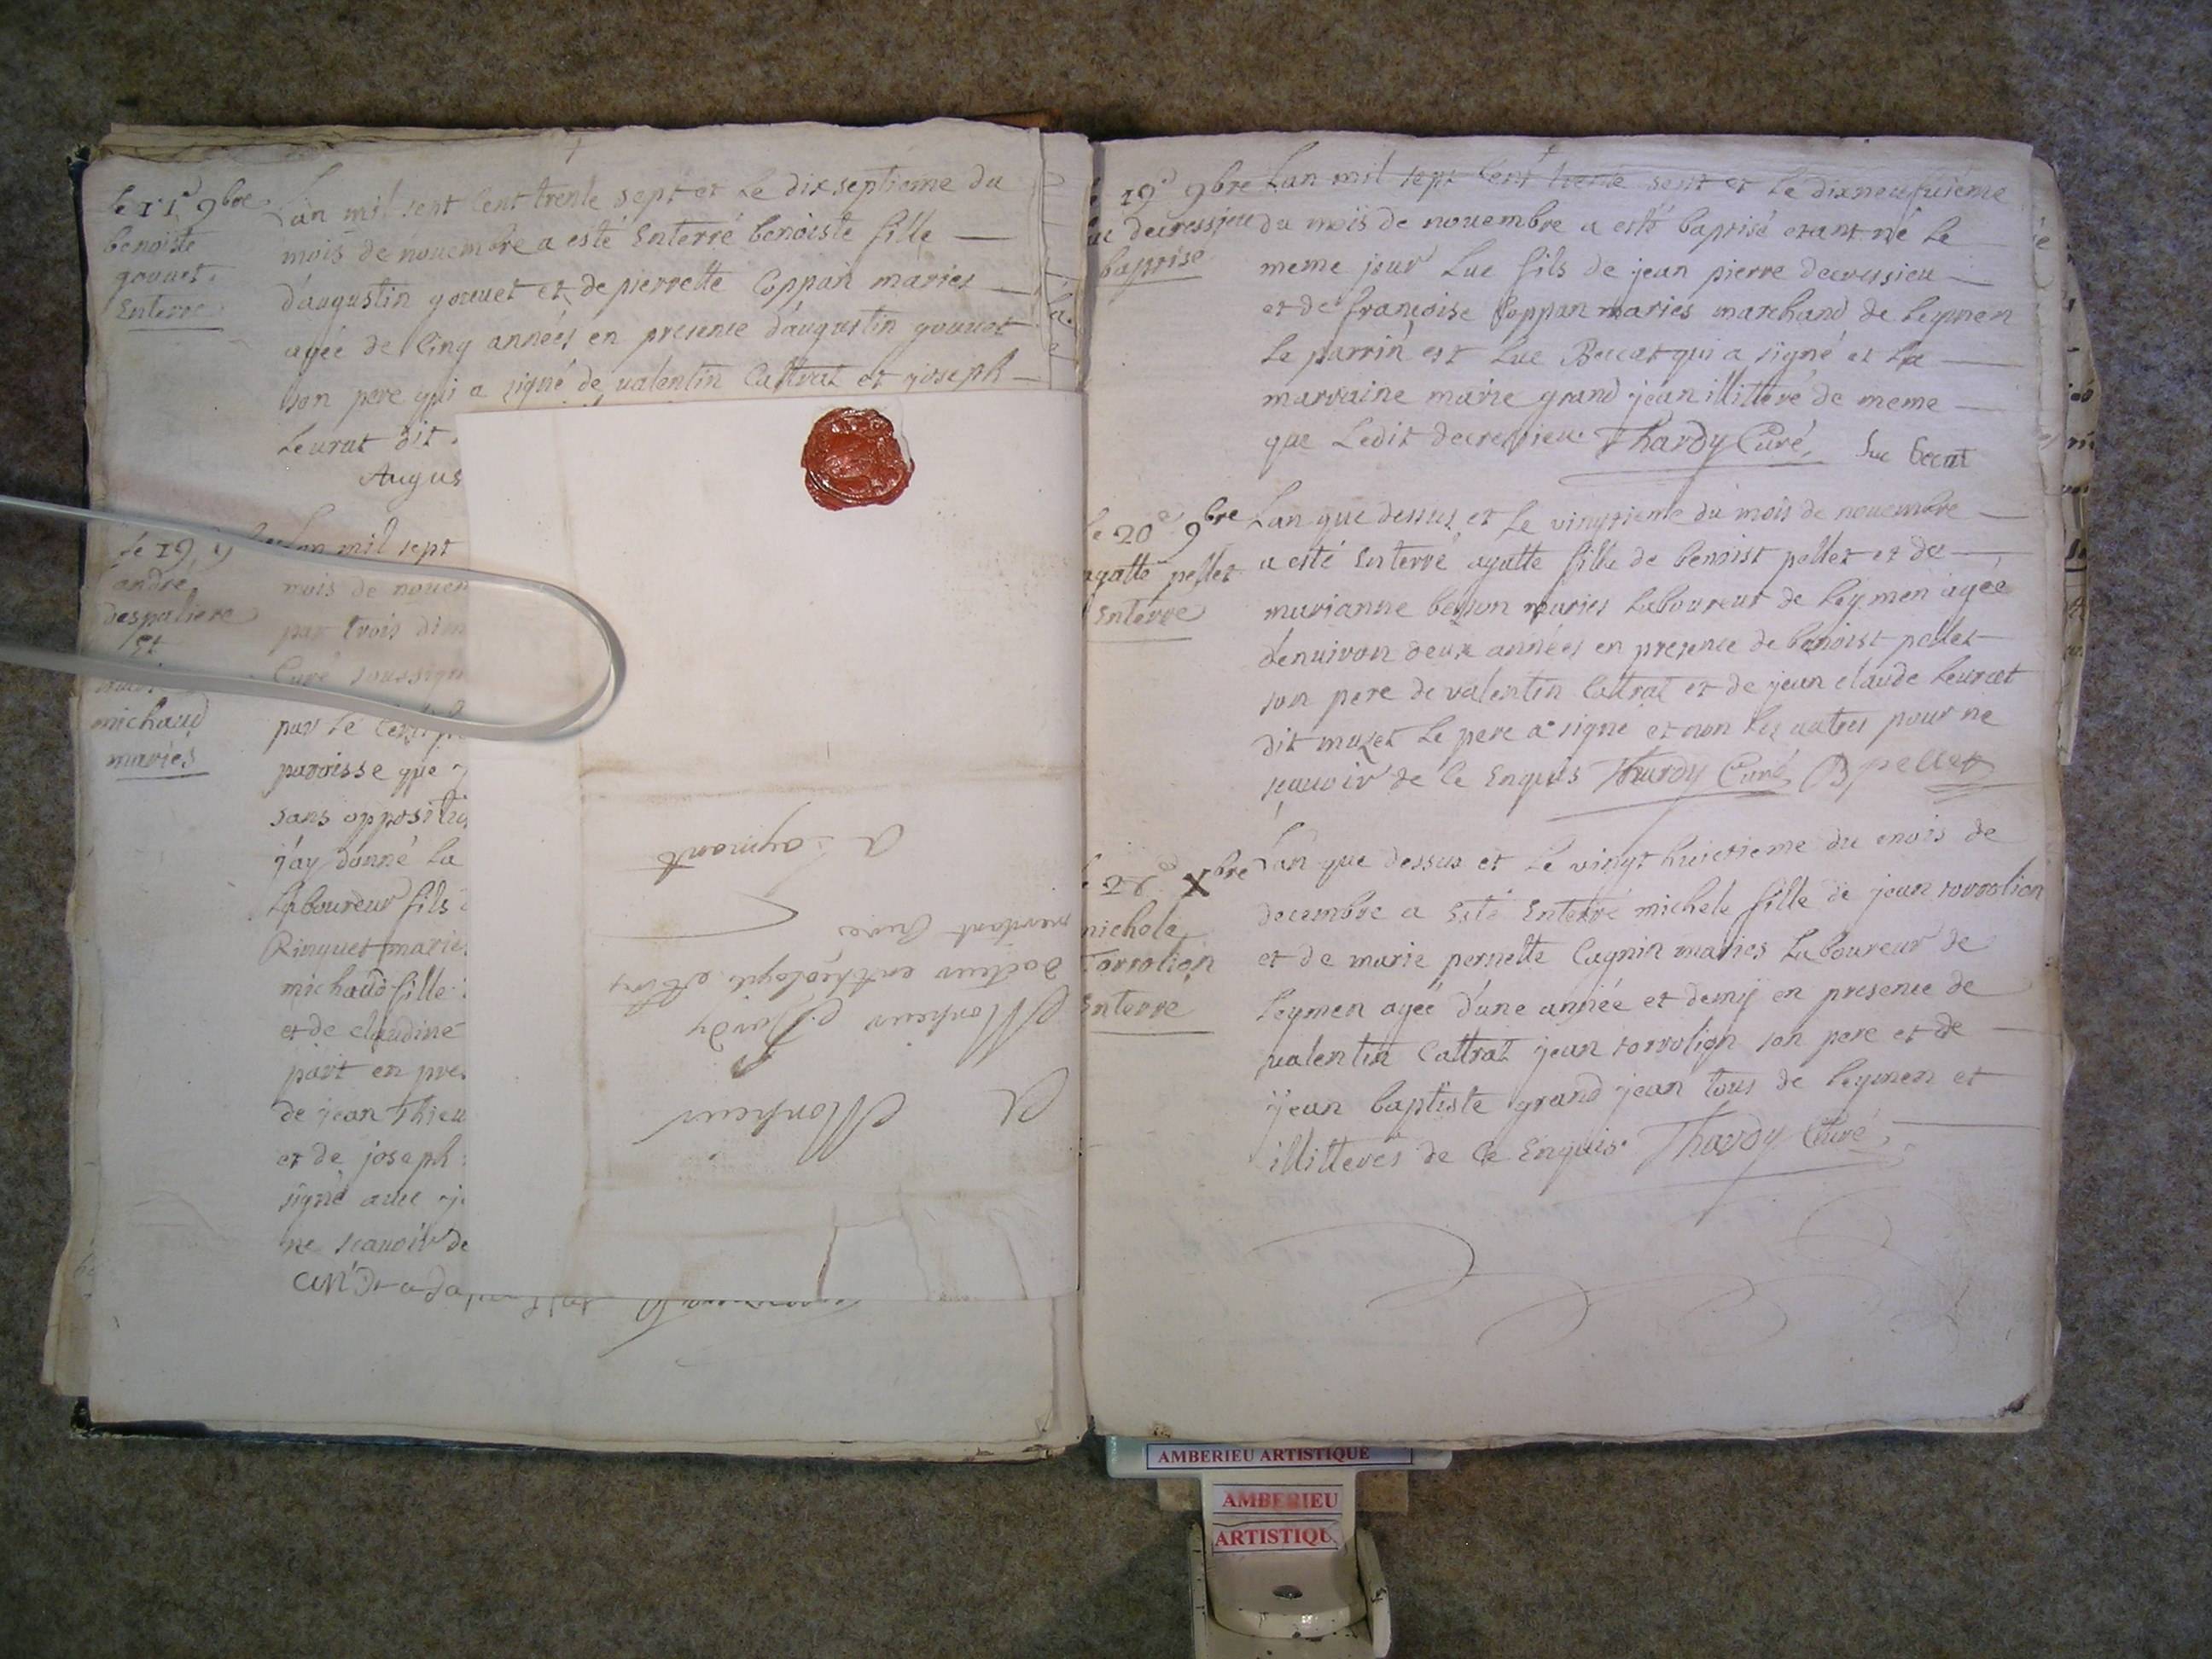 benoiste
gouuet
Enterre
Lan mil sept Cent trente sept et Le dixseptieme du
mois de nouembre a esté Enterré benoiste fille
d'augustin gouuet et de pierrette Coppan maries
agée de Cinq années en presence d'augustin gouuet
son pere qui a signé de ualentin Cattrat et joseph
Leurat dit
Augus
andré
despaliere
et
michaud
maries
Lan mil sept
mois de nouem
par trois dim
Curé soussign
par Le
paroisse que
sans oppositio
j'ay donné La
Laboureur fils
Rinquet maries
michaud fille
et de claudine
part en pres
de jean Thieu
et de joseph
signé auec
ne scauoir de
A Monsieur
Monsieur
docteur en théologie
Curé
A Laymant
19e 9bre
decressieu
baptisé
Lan mil sept Cent trente sept et Le dixneufuieme
du mois de nouembre a esté baptisé etant né Le
meme jour Luc fils de jean pierre decressieu
et de françoise Coppan maries marchand de Leymen
Le parrin est Luc Beccat qui a signé et La
marraine marie grand jean illitteré de meme
que Ledit decressieu Thardy Curé Luc Becat
20e 9bre
agatte pellet
Enterre
Lan que dessus et Le vingtieme du mois de nouembre
a esté Enterré agatte fille de benoist pellet et de
marianne besson maries Laboureur de Leymen agée
denuiron deux années en presence de benoist pellet
son pere de valentin Cattrat et de jean claude Leurat
dit muzet Le pere a signé et non Les autres pour ne
scauoir de Ce Enquis Thardy Curé B pellet
Xbre
michele
Torrolion
Enterre
Lan que dessus et Le vingt huictieme du mois de
decembre a Esté Enterré michele fille de jean torrolion
et de marie pernette Cagnin maries Laboureur de
Leymen agée d'une année et demy en presence de
valentin Cattrat jean torrolion son pere et de
jean baptiste grand jean tous de Leymen et
illitteres de Ce Enquis Thardy Curé
AMBERIEU ARTISTIQUE
AMBERIEU
ARTISTIQU